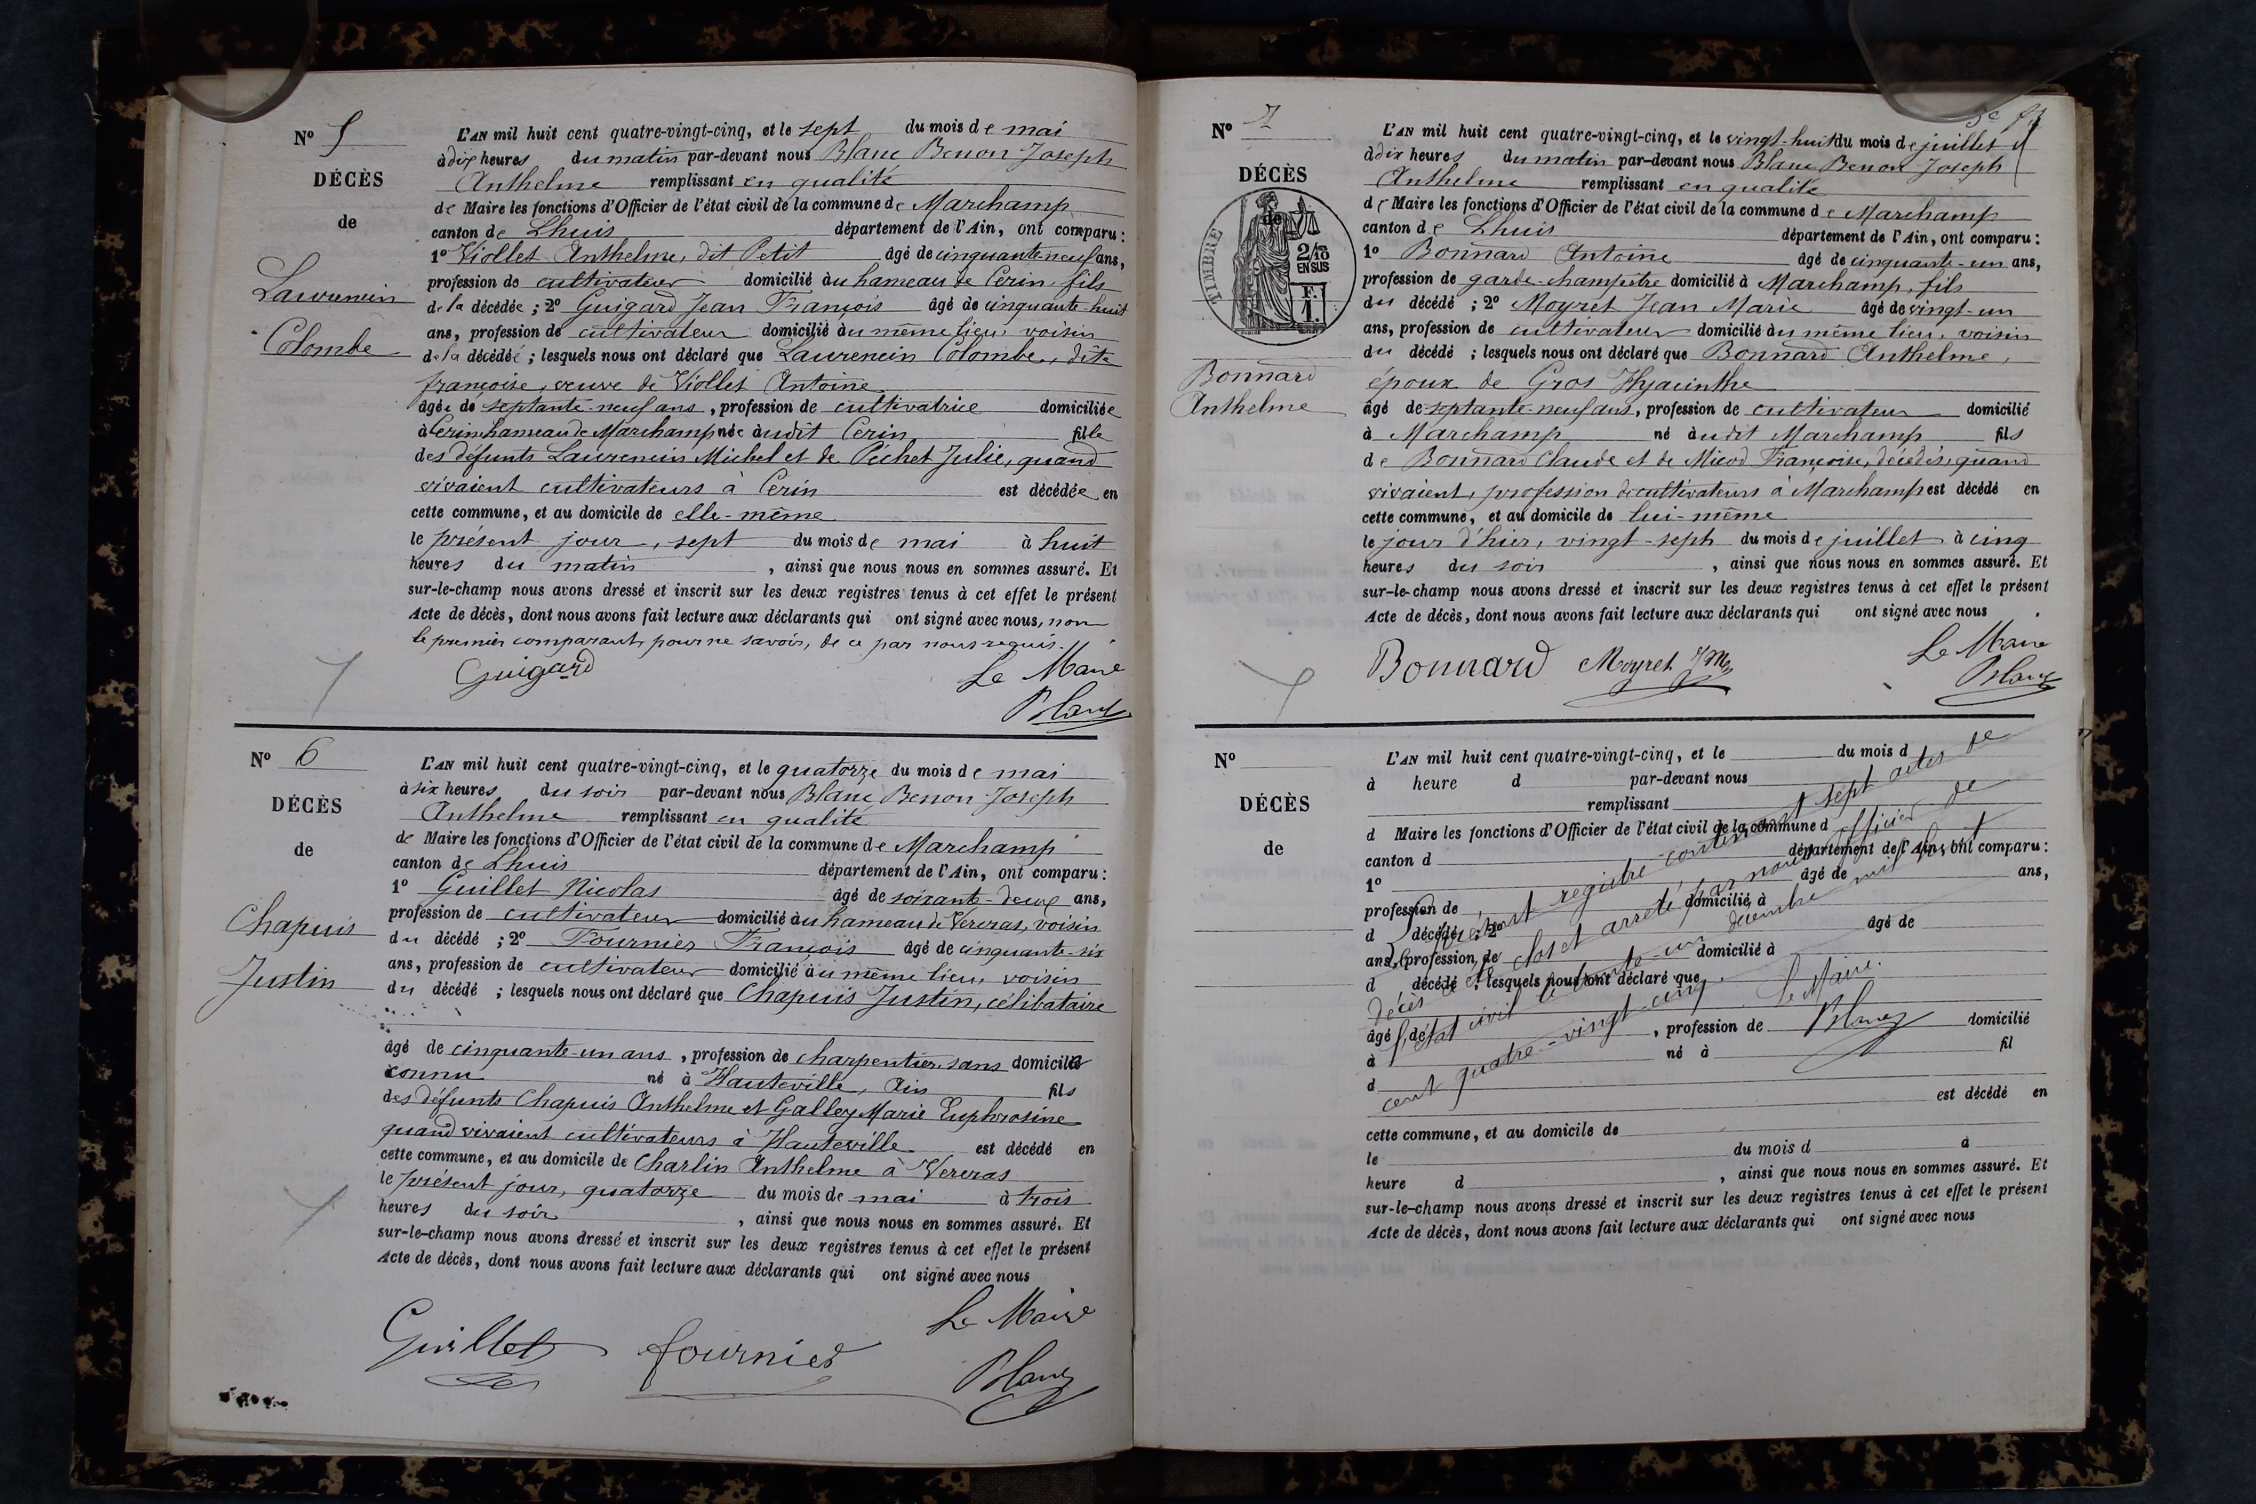 N° 5
DÉCÈS
de
Laurencin
Colombe
L'AN mil huit cent quatre-vingt-cinq, et le sept du mois de mai
à dix heures du matin par-devant nous Blanc Benon Joseph
Anthelme remplissant en qualité
de Maire les fonctions d'Officier de l'état civil de la commune de Marchamp
canton de Lhuis département de l'Ain, ont comparu :
1° Viollet Anthelme, dit Petit âgé de cinquante-neuf ans,
profession de cultivateur domicilié au hameau de Cerin, fils
de la décédée ; 2° Guigard Jean François âgé de cinquante-huit
ans, profession de cultivateur domicilié au même lieu, voisin
de la décédée ; lesquels nous ont déclaré que Laurencin Colombe, dite
françoise, veuve de Viollet Antoine
âgée de septante-neuf ans, profession de cultivatrice domiciliée
à Cerin hameau de Marchamp née audit Cerin fille
des défunts Laurencin Michel et de Péchet Julie, quand
vivaient cultivateurs à Cerin est décédée en
cette commune, et au domicile de elle-même
le présent jour, sept du mois de mai à huit
heures du matin , ainsi que nous nous en sommes assuré. Et
sur-le-champ nous avons dressé et inscrit sur les deux registres tenus à cet effet le présent
Acte de décès, dont nous avons fait lecture aux déclarants qui ont signé avec nous, non
le premier comparant, pour ne savoir, de ce par nous requis.
Guigard Le Maire
Blanc
N° 6
DÉCÈS
de
Chapuis
Justin
L'AN mil huit cent quatre-vingt-cinq, et le quatorze du mois de mai
à six heures du soir par-devant nous Blanc Benon Joseph
Anthelme remplissant en qualité
de Maire les fonctions d'Officier de l'état civil de la commune de Marchamp
canton de Lhuis département de l'Ain, ont comparu :
1° Guillet Nicolas âgé de soixante-deux ans,
profession de cultivateur domicilié au hameau de Vereras, voisin
du décédé ; 2° Fournier François âgé de cinquante-six
ans, profession de cultivateur domicilié au même lieu, voisin
du décédé ; lesquels nous ont déclaré que Chapuis Justin, célibataire
âgé de cinquante-un ans, profession de charpentier, sans domicile
connu né à Hauteville, Ain fils
des défunts Chapuis Anthelme et Galley Marie Euphrosine
quand vivaient cultivateurs à Hauteville est décédé en
cette commune, et au domicile de Charlin Anthelme à Vereras
le présent jour, quatorze du mois de mai à trois
heures du soir , ainsi que nous nous en sommes assuré. Et
sur-le-champ nous avons dressé et inscrit sur les deux registres tenus à cet effet le présent
Acte de décès, dont nous avons fait lecture aux déclarants qui ont signé avec nous
Guillet fournier Le Maire
Blanc
N° 7
DÉCÈS
de
TIMBRE
2/10
EN SUS
F.
1.
Bonnard
Anthelme
L'AN mil huit cent quatre-vingt-cinq, et le vingt-huit du mois de juillet
à dix heures du matin par-devant nous Blanc Benon Joseph
Anthelme remplissant en qualité
de Maire les fonctions d'Officier de l'état civil de la commune de Marchamp
canton de Lhuis département de l'Ain, ont comparu :
1° Bonnard Antoine âgé de cinquante-un ans,
profession de garde-champêtre domicilié à Marchamp, fils
du décédé ; 2° Moyret Jean Marie âgé de vingt-un
ans, profession de cultivateur domicilié au même lieu, voisin
du décédé ; lesquels nous ont déclaré que Bonnard Anthelme,
époux de Gros Hyacinthe
âgé de septante-neuf ans, profession de cultivateur domicilié
à Marchamp né audit Marchamp fils
de Bonnard Claude et de Micod Françoise, décédés, quand
vivaient, profession de cultivateurs à Marchamp est décédé en
cette commune, et au domicile de lui-même
le jour d'hier, vingt-sept du mois de juillet à cinq
heures du soir , ainsi que nous nous en sommes assuré. Et
sur-le-champ nous avons dressé et inscrit sur les deux registres tenus à cet effet le présent
Acte de décès, dont nous avons fait lecture aux déclarants qui ont signé avec nous
Bonnard Moyret Le Maire
Blanc
N°
DÉCÈS
de
L'AN mil huit cent quatre-vingt-cinq, et le du mois d
à heure d par-devant nous
remplissant
d Maire les fonctions d'Officier de l'état civil de la commune d
canton d département de l'Ain, ont comparu :
1° âgé de ans,
profession de domicilié à
d décédé ; 2° âgé de
ans, profession de domicilié à
d décédé ; lesquels nous ont déclaré que
âgé de , profession de domicilié
à né à fil
d
est décédé en
cette commune, et au domicile de
le du mois d à
heure d , ainsi que nous nous en sommes assuré. Et
sur-le-champ nous avons dressé et inscrit sur les deux registres tenus à cet effet le présent
Acte de décès, dont nous avons fait lecture aux déclarants qui ont signé avec nous
Le présent registre contenant sept actes de
décès a été clos et arrêté par nous officier de
l'état civil le trente-un décembre mil huit
cent quatre-vingt-cinq.
Le Maire.
Blanc